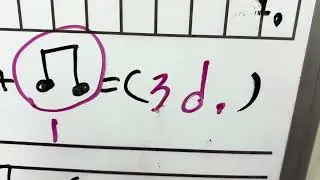 + ♫ = ( 3 d. )
1